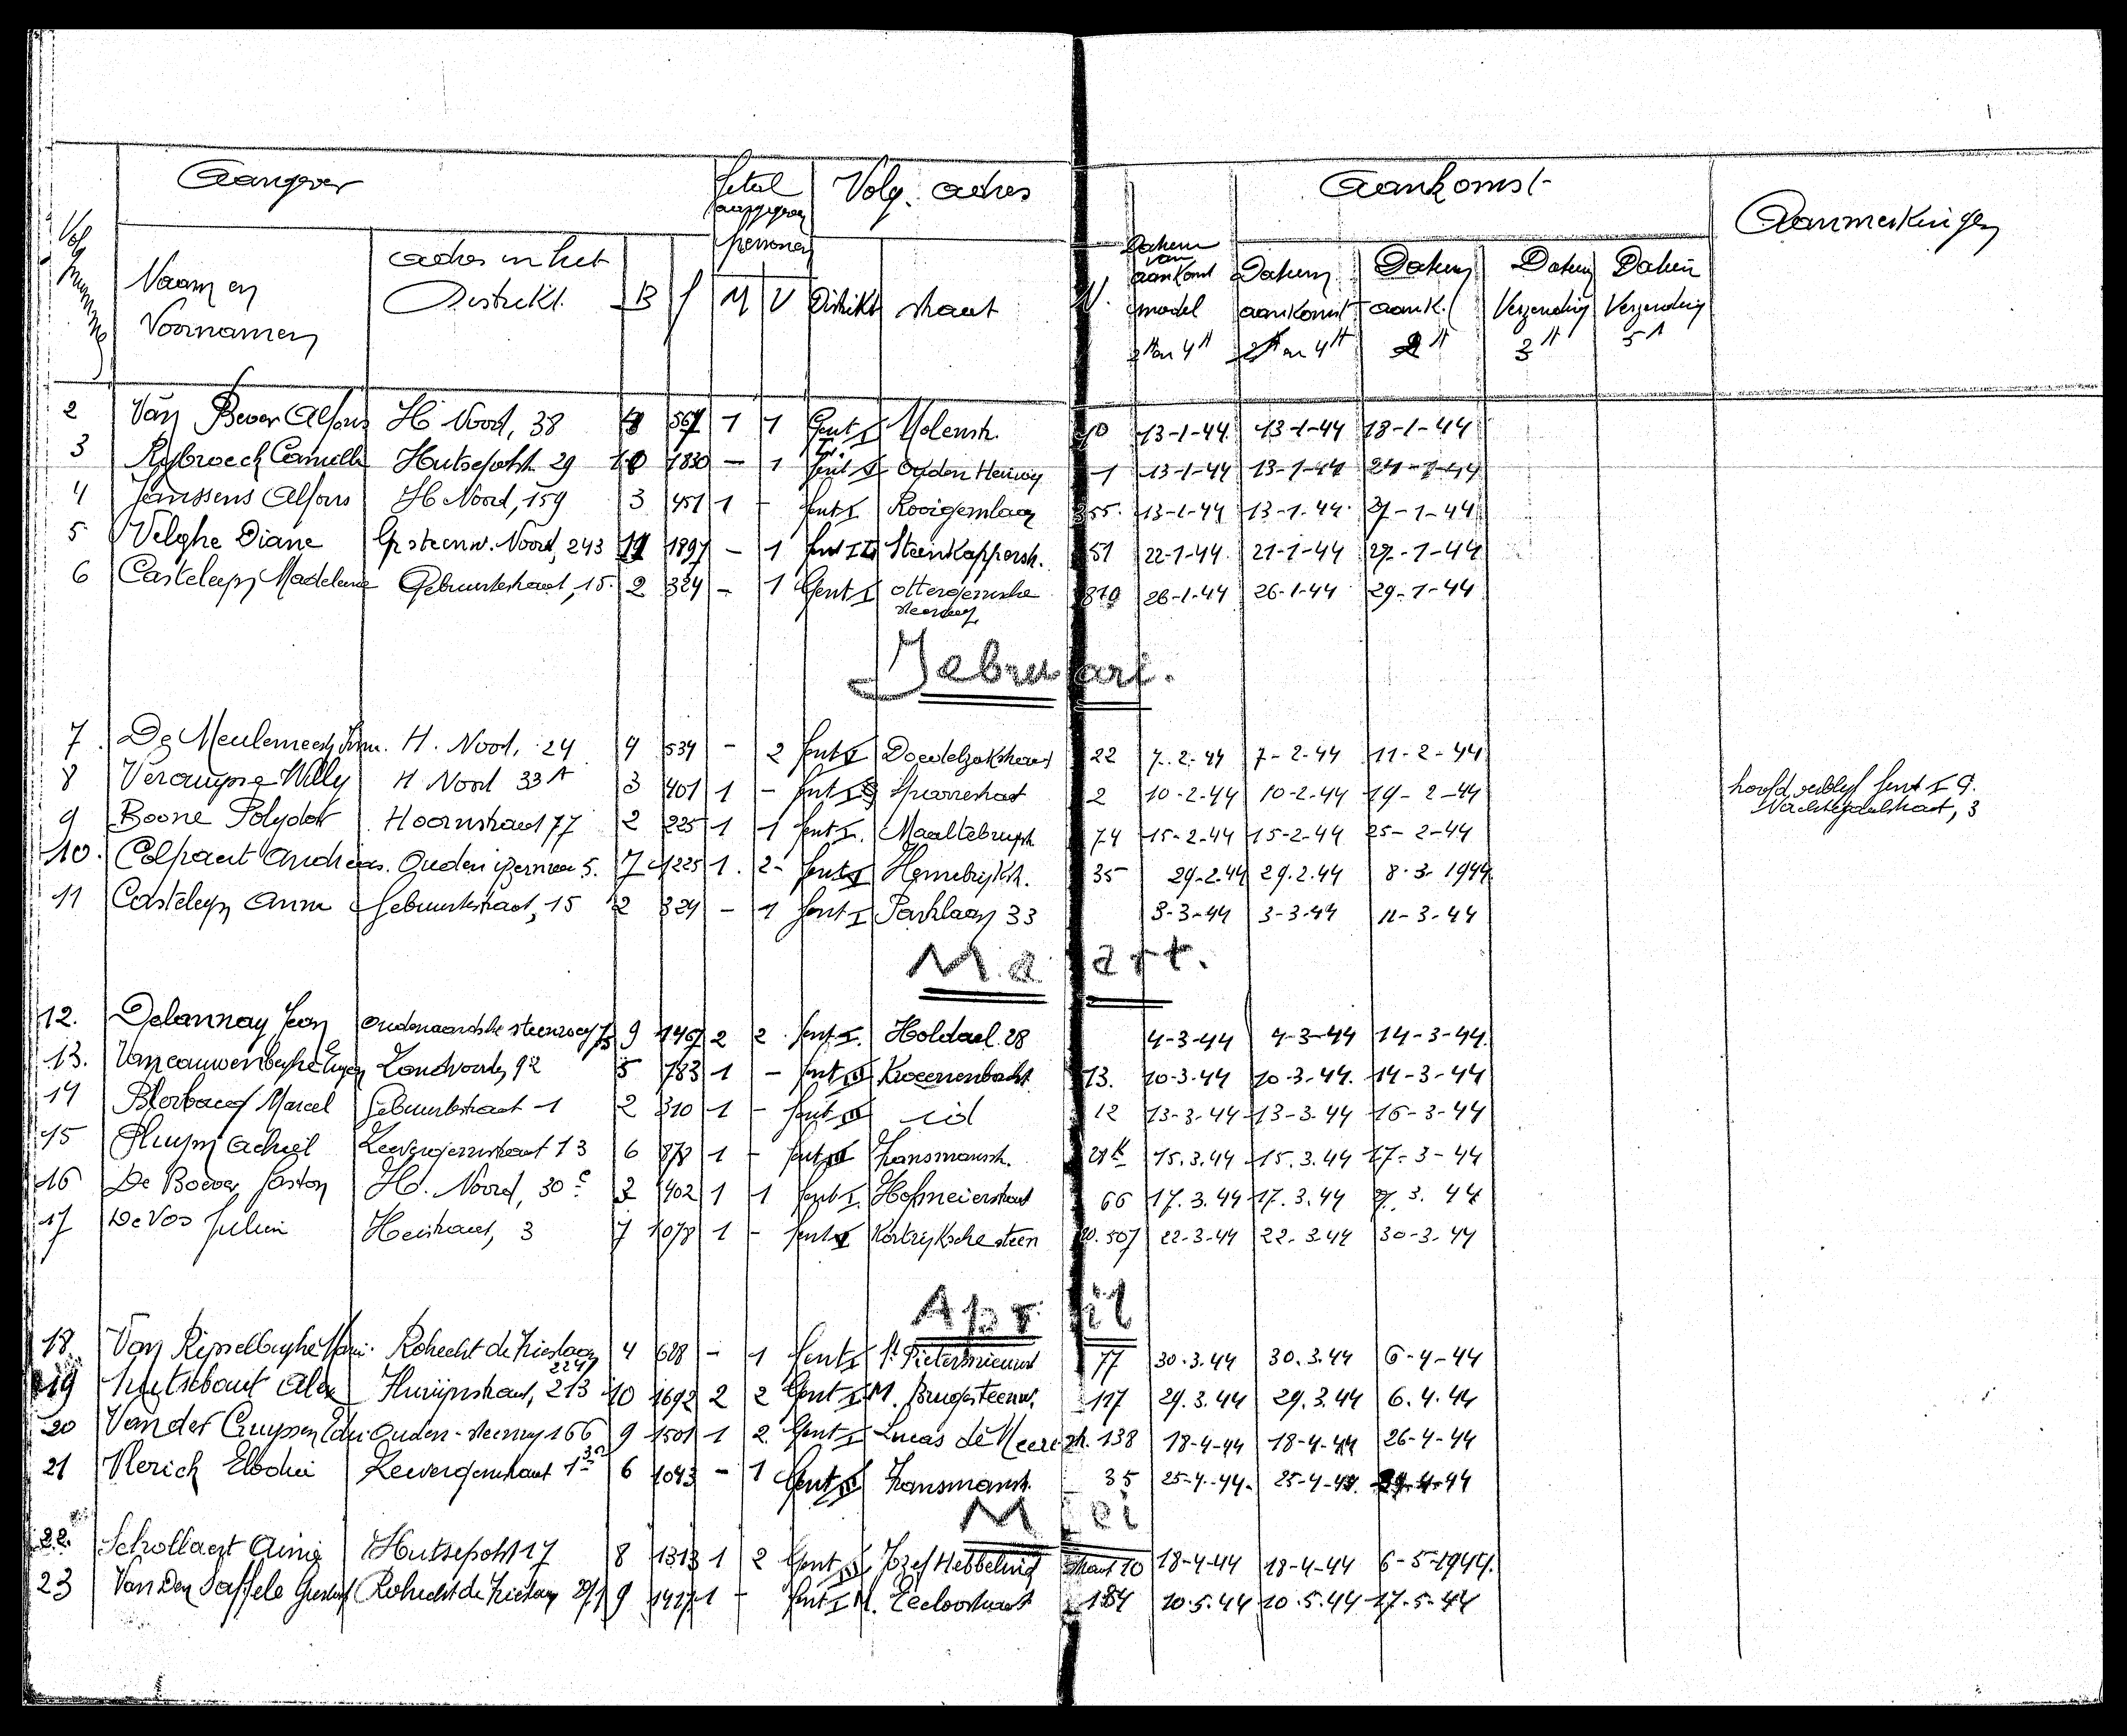 Aangever Getal aangegeven personen Volg. adres Aankomst Aanmerkingen
Volg nummer Naam en Voornamen adres in het Distrikt. B f M V Distrikt straat N. Datum van aankomst model 2A en 4A Datum aankomst 2A en 4A Datum aank. 2A Datum Verzending 3A Datum Verzending 5A
2 Van Bever Alfons H. Noord, 38 567 1 1 Gent I Molenstr. 10 13-1-44 13-1-44 18-1-44
3 Rybroeck Camille Hutsepotstr. 29 10 1830 - 1 Gent I Ouden Heirweg 1 13-1-44 13-1-44 24-1-44
4 Janssens Alfons H. Noord, 159 3 451 1 - Gent I Rooigemlaan 355 13-1-44 13-1-44 27-1-44
5 Velghe Diane G. steenw. Noord, 243 11 1897 - 1 Gent II Steenkapperstr. 51 22-1-44 21-1-44 29-1-44
6 Casteleyn Madeleine Gebuurtestraat, 15. 2 324 - 1 Gent I ottergemsche steenweg 810 26-1-44 26-1-44 29-1-44
Februari.
7. De Meulemeester Irm. H. Noord, 24 4 534 - 2 Gent I Doedelzakstraat 22 7-2-44 7-2-44 11-2-44
8 Verougstr Willy H Noord 33A 3 401 1 - Gent I Sparrestraat 2 10-2-44 10-2-44 19-2-44 hoofdverblyf Gent I G. Nachtegaalstraat, 3
9 Boone Polydor Hoornstraat 77 2 225 1 1 Gent I. Maaltebrugstr. 74 15-2-44 15-2-44 25-2-44
10. Colpaert Andreas. Ouden ijzeren 5. 7 1225 1. 2- Gent I Hemelrijkstr. 35 29-2-44 29.2.44 8-3-1944
11 Casteleyn Anna Gebuurtestraat, 15 2 324 - 1 Gent I Parklaan 33 3-3-44 3-3-44 11-3-44
Maart.
12. Delannay Jean Oudenaardsche steenweg 9 1467 2 2 Gent I. Holdael 28 4-3-44 4-3-44 14-3-44.
13. Vancauwenberghe Eugen Zandvoorde, 92 5 783 1 - Gent III 13. 10-3-44 10-3-44. 14-3-44
14 Marcel Gebuurtestraat 1 2 310 1 - Gent III id 12 13-3-44 13-3-44 16-3-44
15 Pluym Achiel Leevergemstraat 13 6 878 1 - Gent III Fransmanstr. 15.3.44 15.3.44 17-3-44
16 De Boever Gaston H. Noord, 30c 3 402 1 1 Gent I. Hofmeierstraat 66 17.3.44 17.3.44 27.3.44
17 De Vos Julien Heistraat, 3 7 1078 1 - Gent I Kortrijksche steen w. 507 22-3-44 22-3-44 30-3-44
April
18. Van Rysselberghe Mari. Robrecht de Frieslaan 4 628 - 1 Gent I St. Pietersnieuwst 77 30.3.44 30.3.44 6-4-44
19 Hutsebaut Alex Fluwijnstraat, 213 10 1692 2 2 Gent I M. Brugsteenw. 117 29.3.44 29.3.44 6.4.44
20 Vander Cruyssen Edu. Ouden-steenweg 166 9 1501 1 2 Gent I Lucas de Heere str. 138 18-4-44 18-4-44 26-4-44
21 Vlerick Elodie Leevergemstraat 6 1043 - 1 Gent III Fransmanstr. 35 25-4-44. 25-4-44. 29-4-44
Mei
22. Schollaert Aimé Hutsepotstr 17 8 1313 1 2 Gent III Jozef Hebbelinck straat 10 18-4-44 18-4-44 6-5-1944.
23 Van Den Saffele Gustaaf Robrecht de Frieslaan 9 1427 1 - Gent I M. Eeclostraat 184 10.5.44 10.5.44 17-5-44